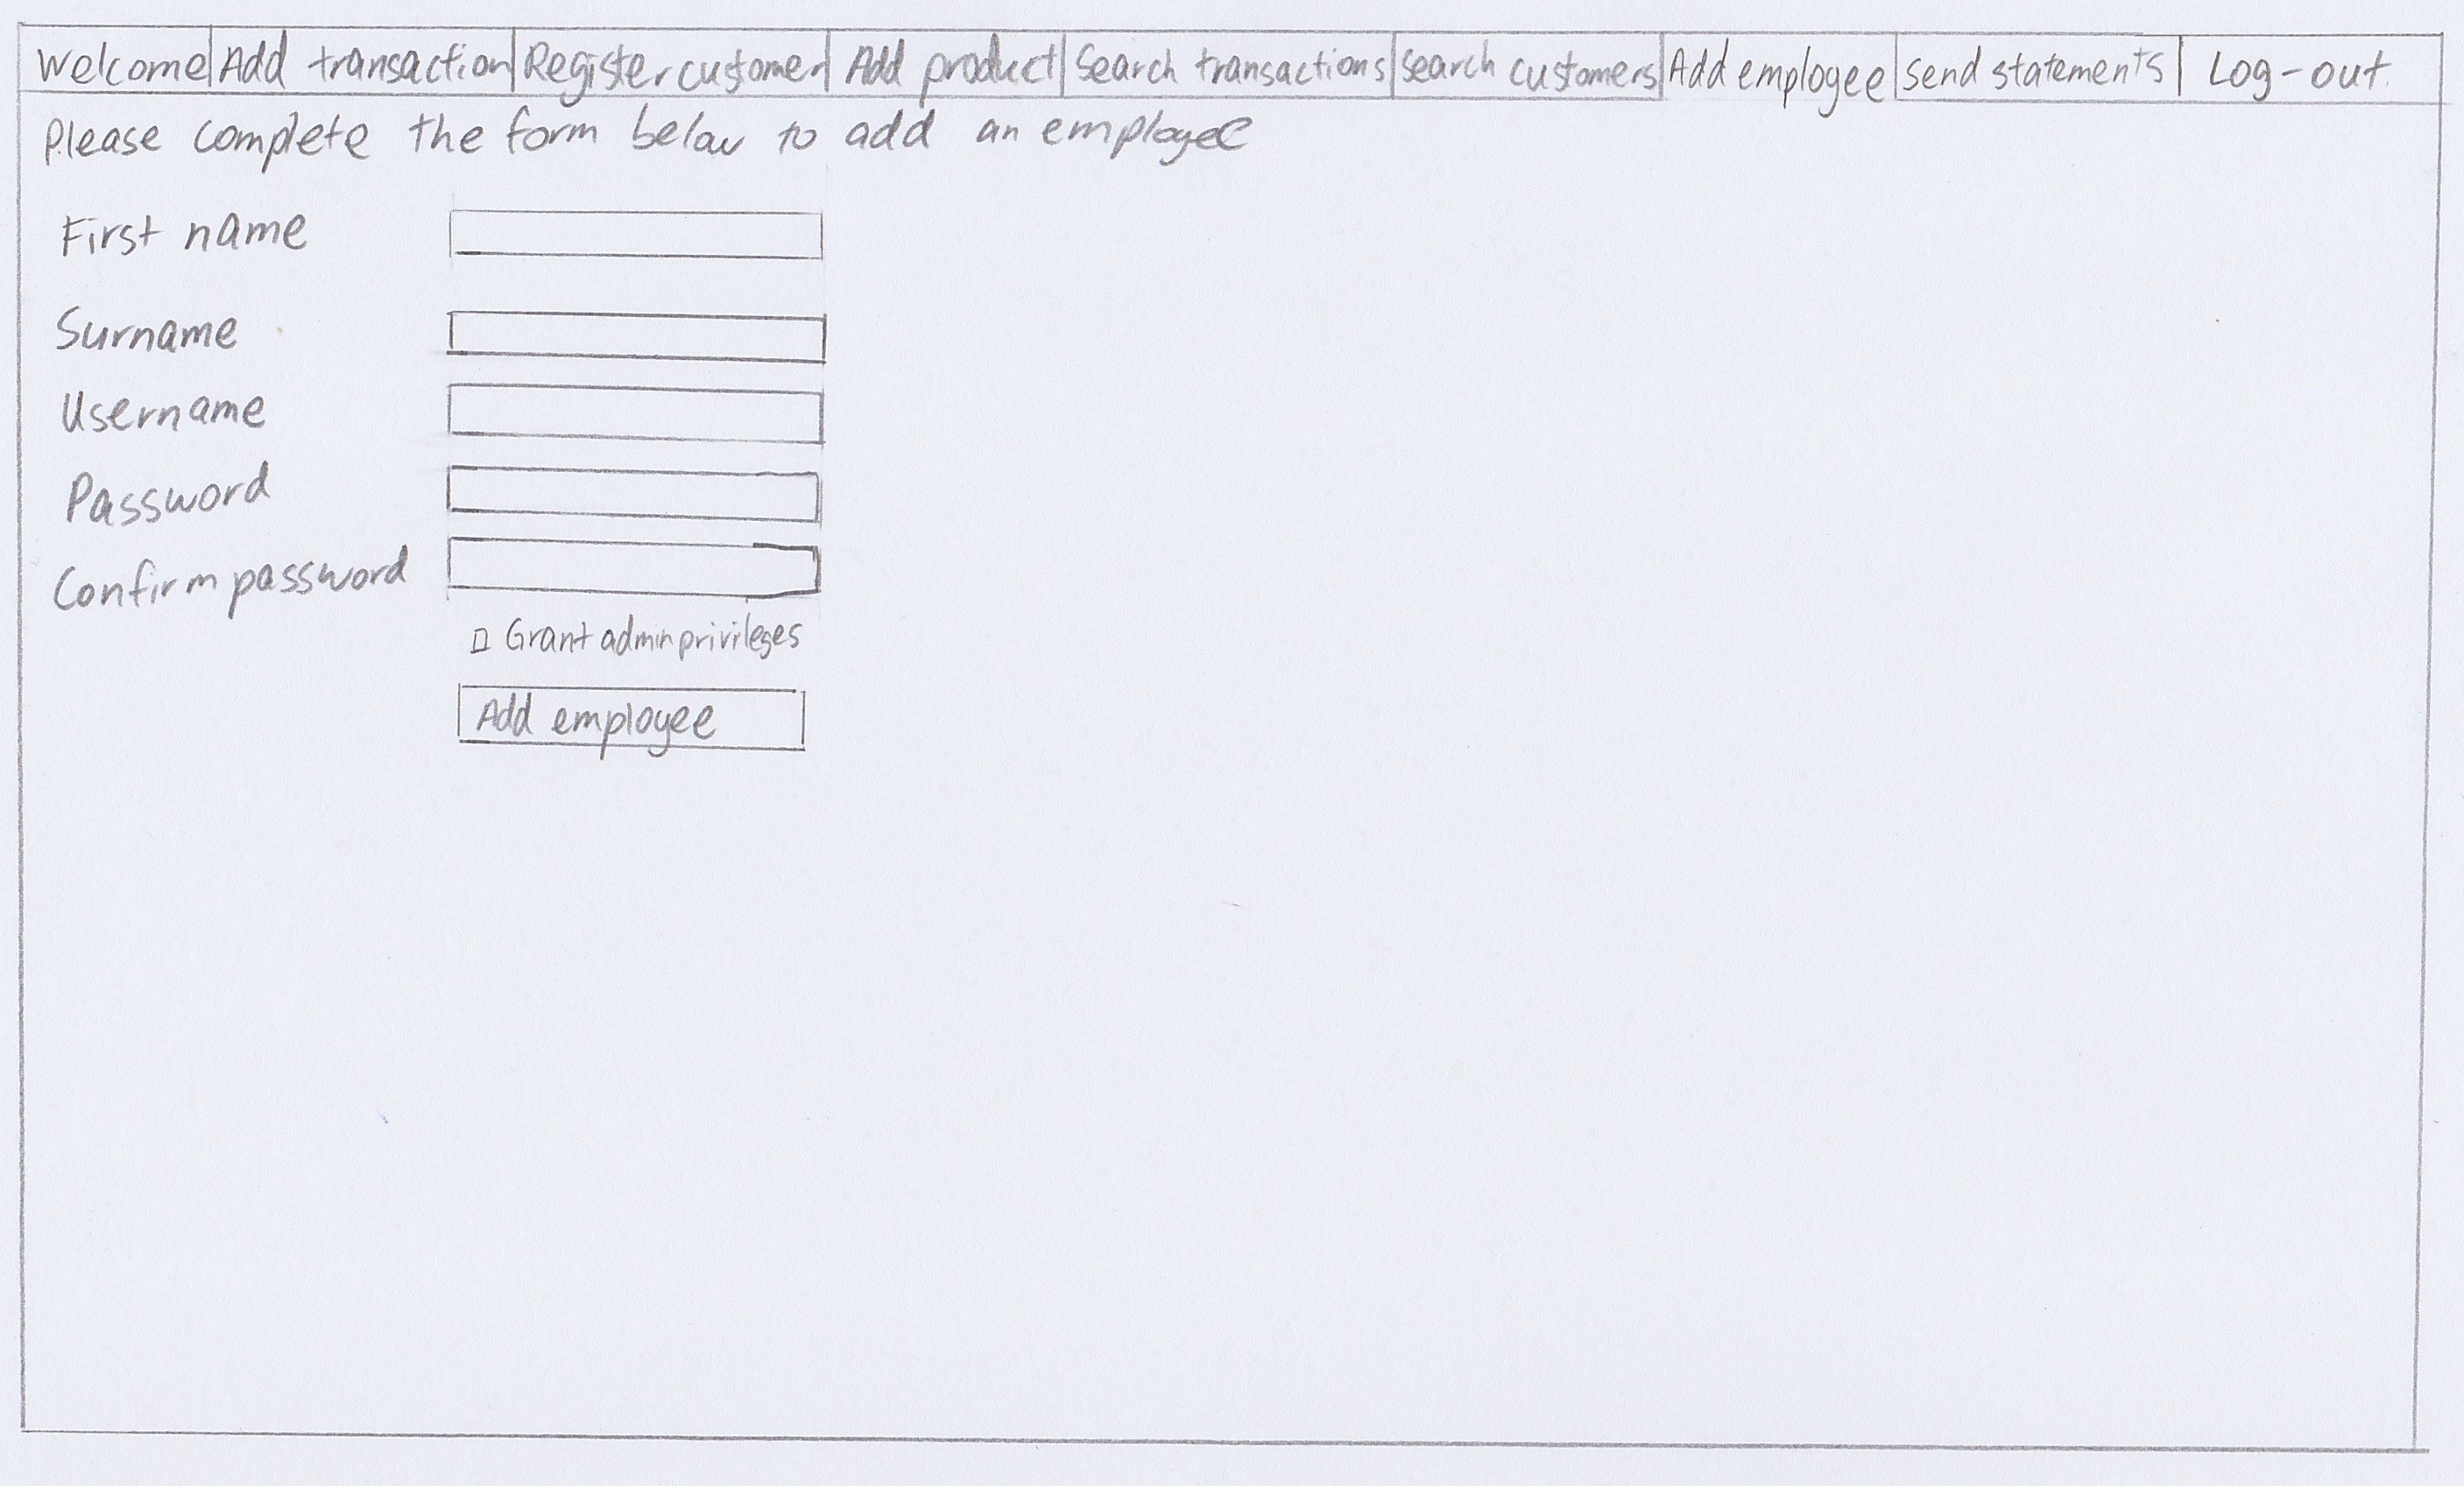 Welcome Add transaction Register customer Add product Search transactions Search customers Add employee Send statements Log-out
Please complete the form below to add an employee
First name
Surname
Username
Password
Confirm password
Grant admin privileges
Add employee